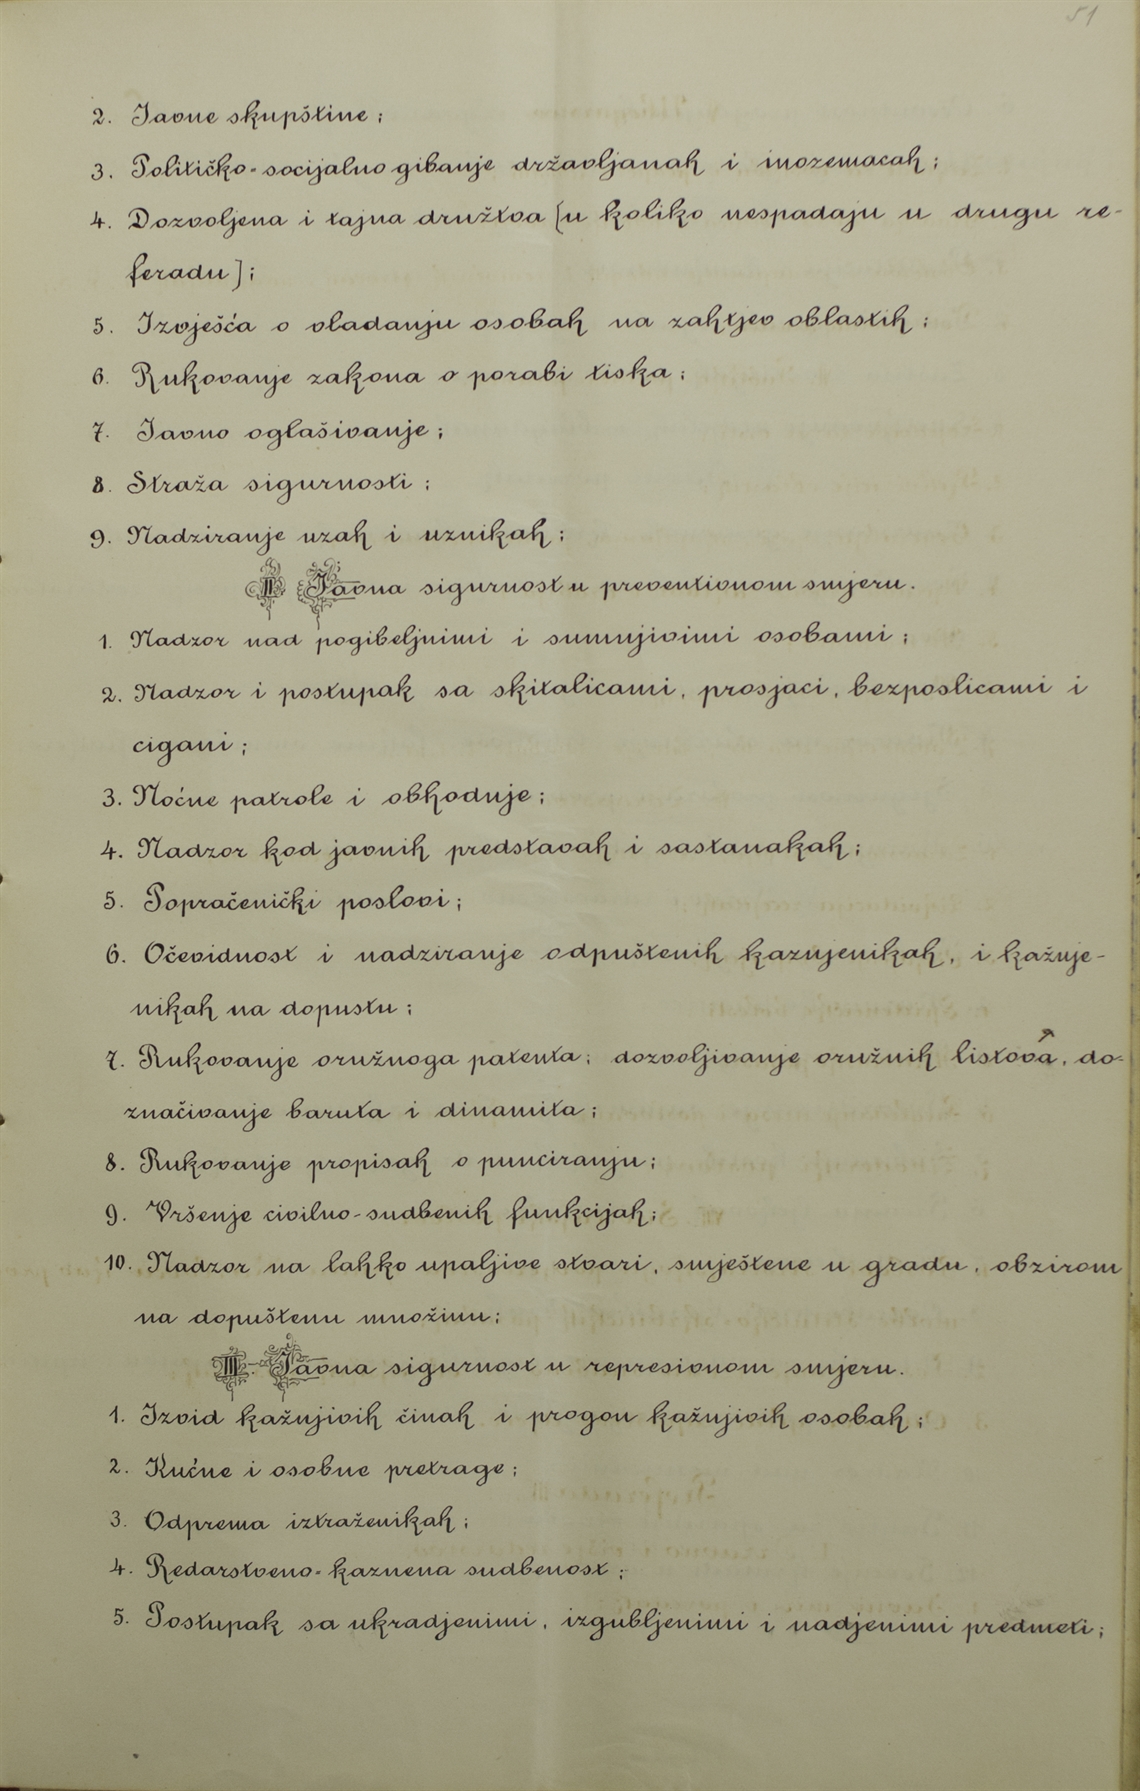 51
2. Javne skupštine;
3. Političko-socijalno gibanje državljanah i inozemacah;
4. Dozvoljena i tajna družtva [u koliko nespadaju u drugu re-
feradu];
5. Izvješća o vladanju osobah na zahtjev oblastih;
6. Rukovanje zakona o porabi tiska;
7. Javno oglašivanje;
8. Straža sigurnosti;
9. Nadziranje uzah i uznikah;
II Javna sigurnost u preventivnom smjeru.
1. Nadzor nad pogibeljnimi i sumnjivimi osobami;
2. Nadzor i postupak sa skitalicami, prosjaci, bezposlicami i
cigani;
3. Noćne patrole i obhodnje;
4. Nadzor kod javnih predstavah i sastanakah;
5. Popračenički poslovi;
6. Očevidnost i nadziranje odpuštenih kaznjenikah, i kažnje-
nikah na dopustu;
7. Rukovanje oružnoga patenta; dozvoljivanje oružnih listova, do-
značivanje baruta i dinamita;
8. Rukovanje propisah o punciranju;
9. Vršenje civilno-sudbenih funkcijah;
10. Nadzor na lahko upaljive stvari, smještene u gradu, obzirom
na dopuštenu množinu;
III. Javna sigurnost u represivnom smjeru.
1. Izvid kažnjivih činah i progon kažnjivih osobah;
2. Kućne i osobne pretrage;
3. Odprema iztraženikah;
4. Redarstveno-kaznena sudbenost;
5. Postupak sa ukradjenimi, izgubljenimi i nadjenimi predmeti;